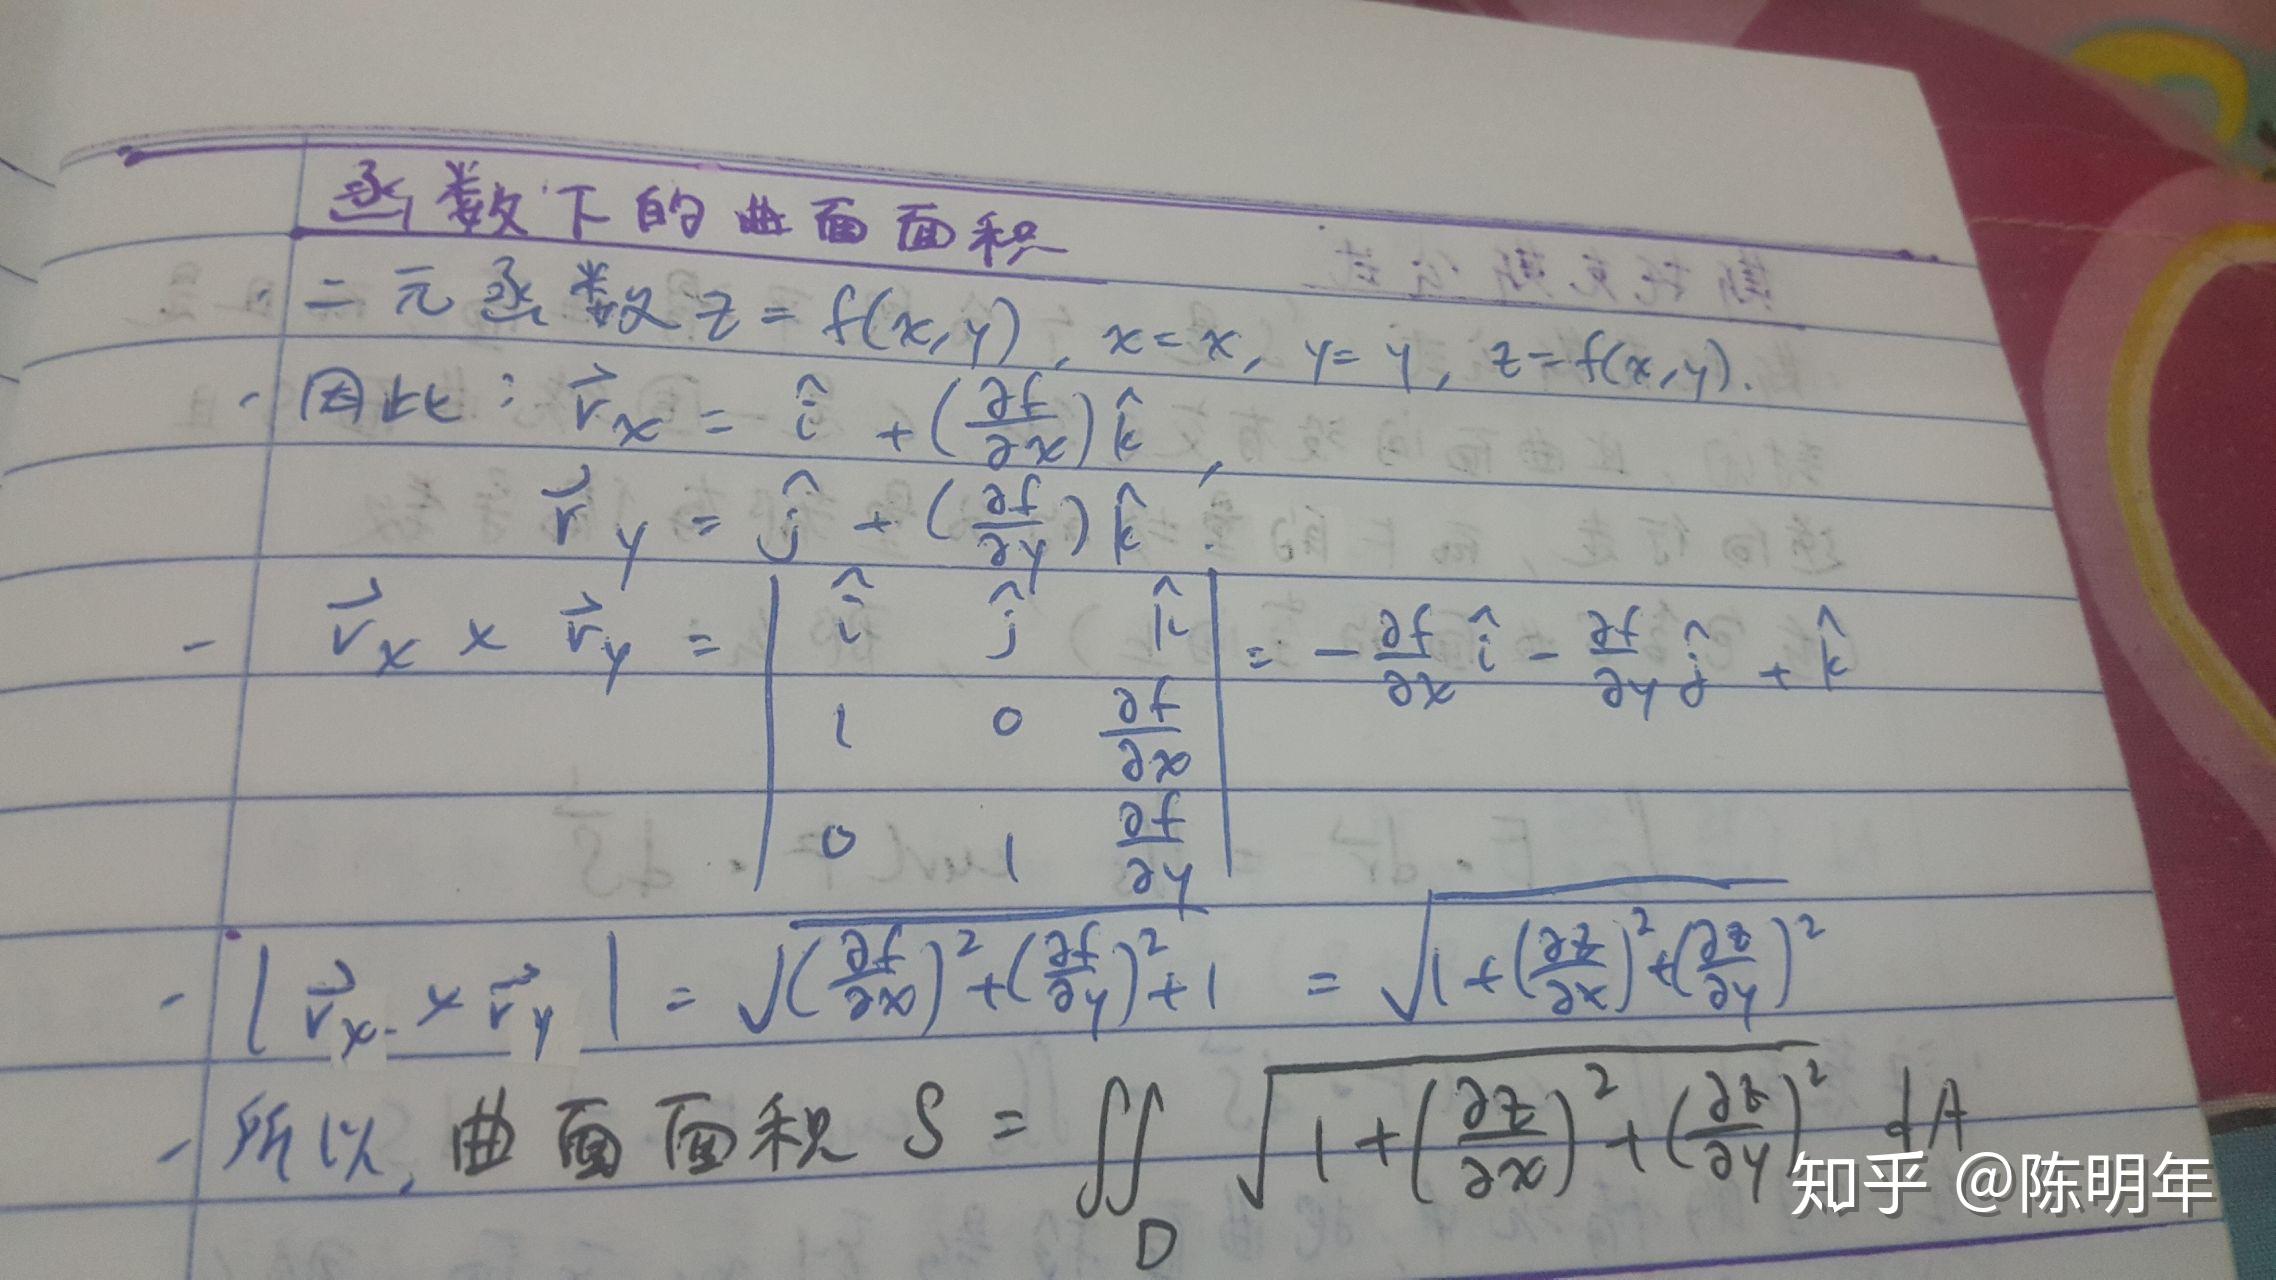 函数下的曲面面积
· 二元函数 z = f(x,y), x = x, y = y, z = f(x,y).
- 因此: r⃗ₓ = î + (∂f/∂x) k̂,
r⃗_y = ĵ + (∂f/∂y) k̂.
- r⃗ₓ × r⃗_y = | î ĵ k̂ | = -∂f/∂x î - ∂f/∂y ĵ + k̂
1 0 ∂f/∂x
0 1 ∂f/∂y
- | r⃗ₓ × r⃗_y | = √((∂f/∂x)² + (∂f/∂y)² + 1) = √(1 + (∂z/∂x)² + (∂z/∂y)²)
- 所以, 曲面面积 S = ∬_D √(1 + (∂z/∂x)² + (∂z/∂y)²) dA
知乎 @陈明年